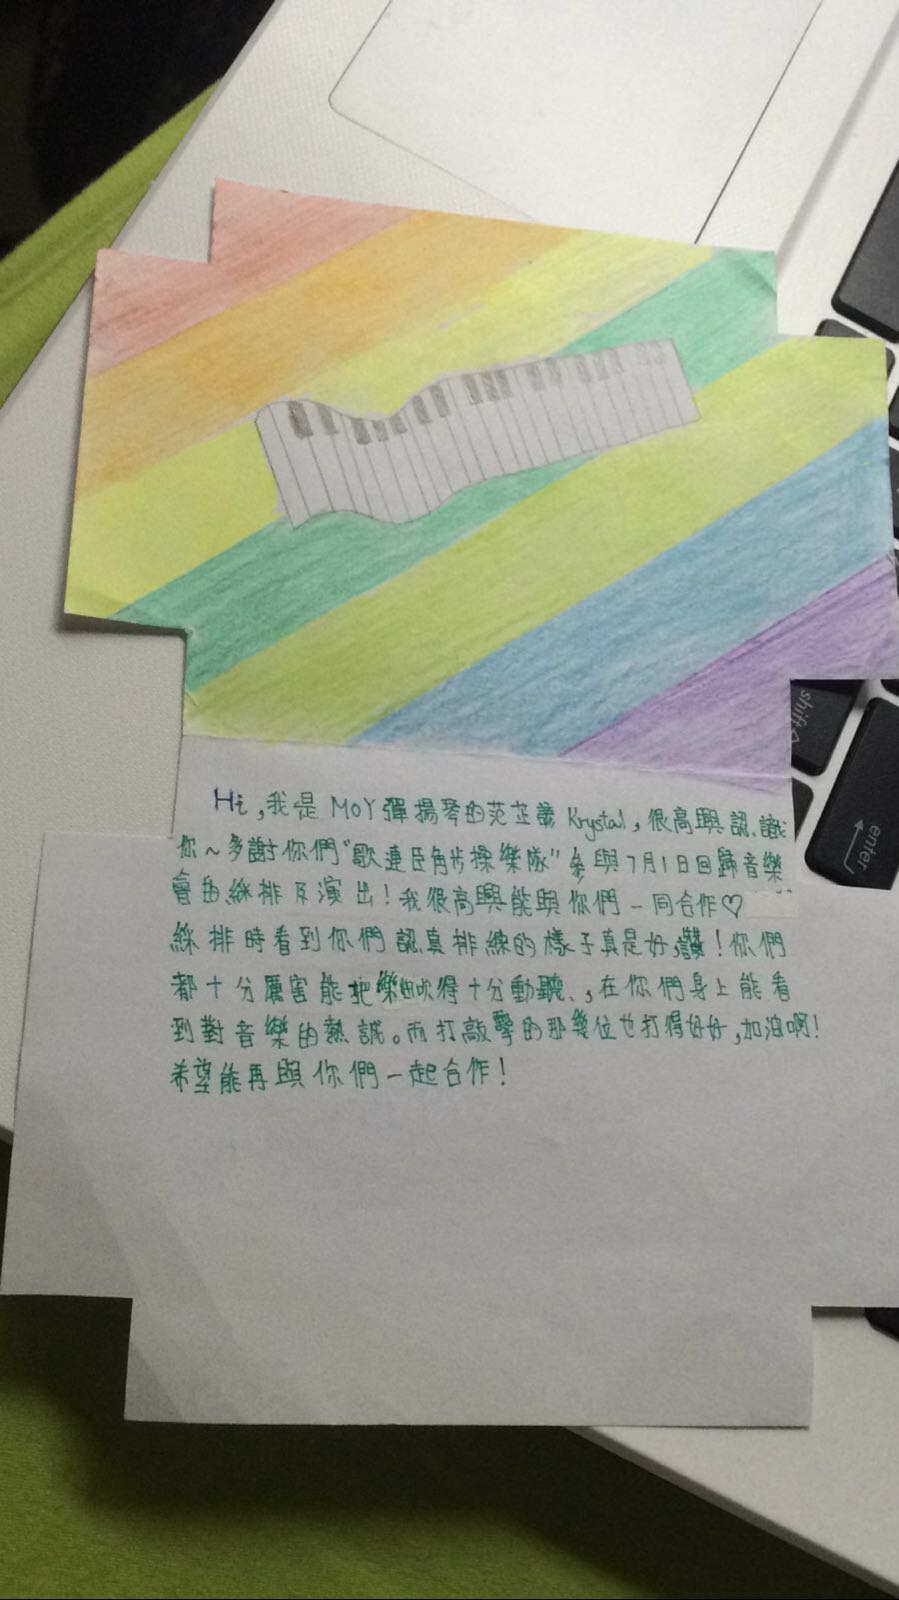 Hi,我是MOY彈揚琴的范芷 Krystal,很高興認識
你~多謝你們"歌連臣角步操樂隊"參與7月1日回歸音樂
會的綵排及演出!我很高興能與你們一同合作♡
綵排時看到你們認真排練的樣子真是好讚!你們
都十分厲害能把樂曲吹得十分動聽,在你們身上能看
到對音樂的熱誠。而打敲擊的那幾位也打得好好,加油啊!
希望能再與你們一起合作!
shift
enter